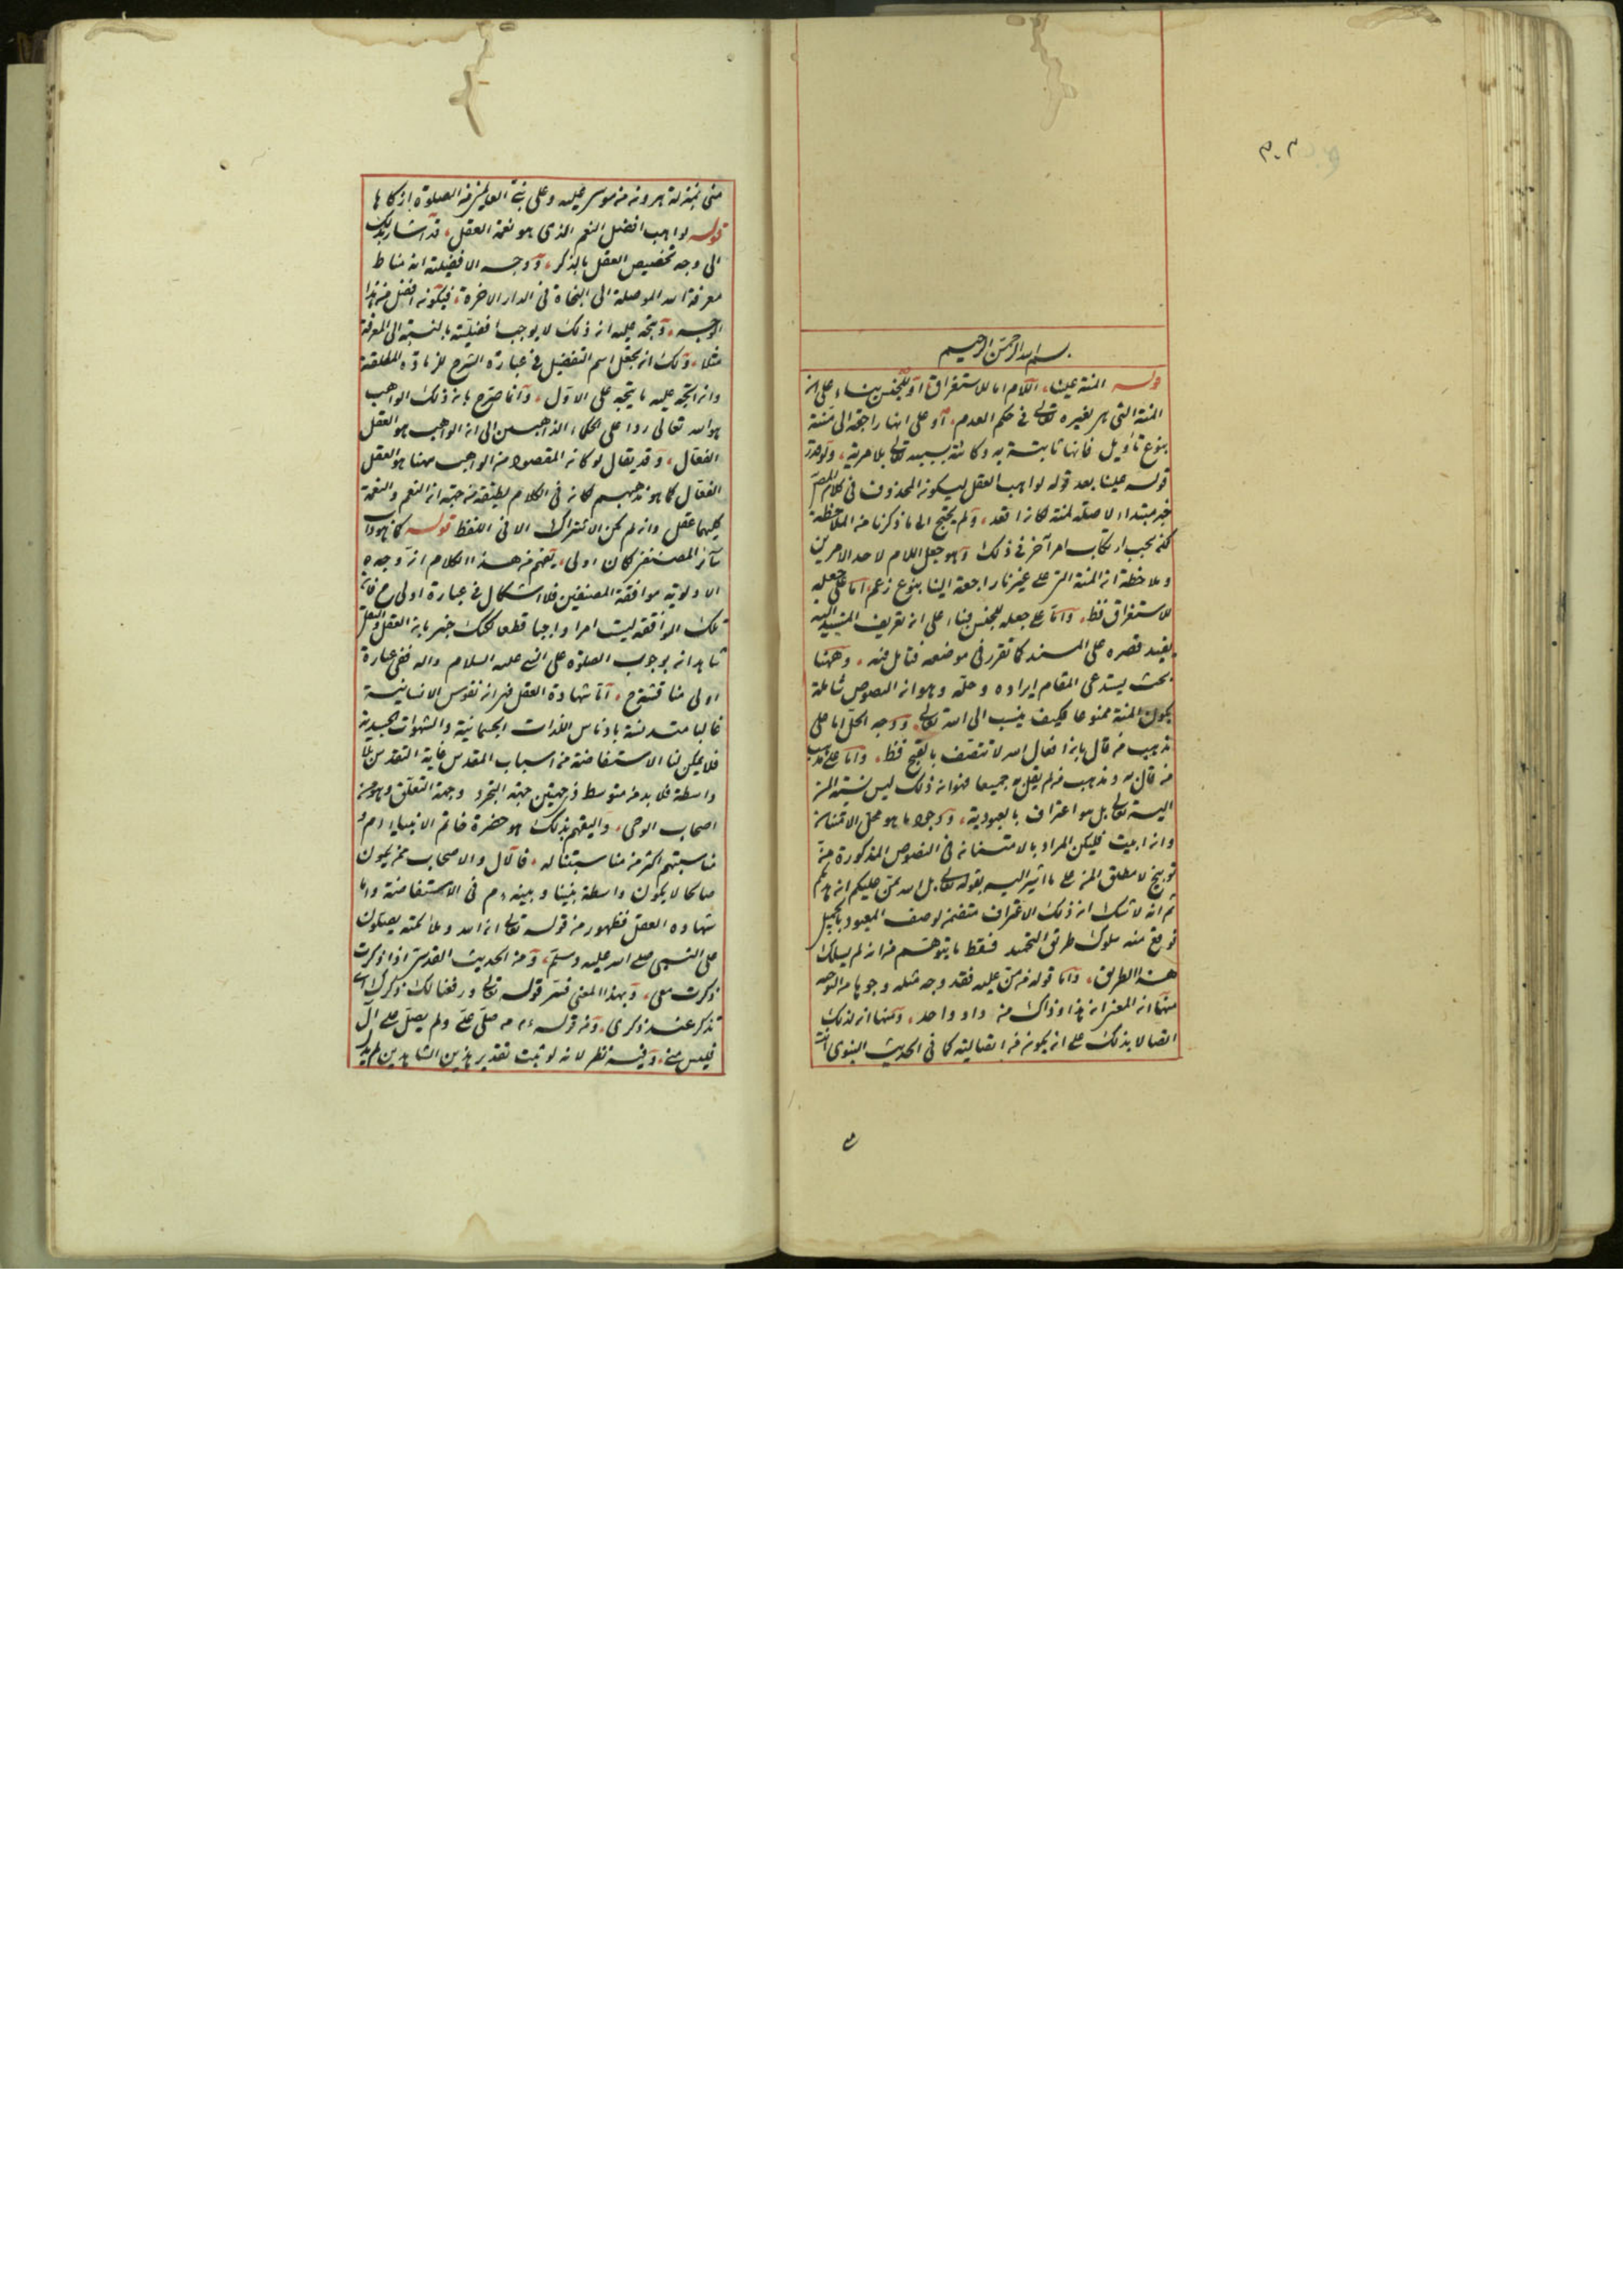 ٣٠٣
بسم الله الرحمن الرحيم
قوله المنة علينا، اللام اما للاستغراق او للجنس بناء على ان
المنة التى هى لغيره تعالى فى حكم العدم، او على انها راجعة الى منته
بنوع تأويل فانها ثابتة به وكائنة بسببه تعالى بلا مرية، ولو قدر
قوله علينا بعد قوله لواهب العقل ليكون المحذوف فى كلام المص
خبر مبتداء لا صلة لمنة لكان اقعد، ولم يحتج الى ما ذكرنا من الملاحظة
لكن يجب ارتكاب امر آخر فى ذلك وهو جعل اللام لاحد الامرين
وملاحظة ان المنة التى على غيرنا راجعة الينا بنوع زعم، اما على جعله
للاستغراق فظ، واما على جعله للجنس فبناء على ان تعريف المسند اليه
يفيد قصره على المسند كما تقرر فى موضعه فتأمل فيه، وههنا
بحث يستدعى المقام ايراده وحله وهو ان النصوص شاملة
بكون المنة ممنوعا فكيف ينسب الى الله تعالى، ووجه الحل اما على
مذهب من قال بان افعال الله لا تتصف بالقبح فظ، واما على مذهب
من قال به ومذهب من لم يقل به جميعا فهو ان ذلك ليس نسبة المن
اليه تعالى بل هو اعتراف بالعبودية، وجولا ما هو محل الامتنان
وان ابيت فليكن المراد بالامتنان فى النصوص المذكورة منة
توبيخ لا مطلق المن على ما اشير اليه بقوله تعالى بل الله يمن عليكم ان هديكم
ثم انه لا شك ان ذلك الاعتراف متضمن لوصف المعبود بالجميل
فوقع منه سلوك طريق التحميد فسقط ما يتوهم من انه لم يسلك
هذا الطريق، واما قوله من من عليه فقد وجه مثله وجوها من التوجيه
منها ان المعنى ان هذا وذاك من واد واحد، ومنها ان لذلك
اتصالا بذلك على ان يكون من اتصالية كما فى الحديث النبوى انت
منى بمنزلة هرون من موسى عليه وعلى نبى العالمين من الصلوة ازكاها
قوله لواهب افضل النعم الذى هو نعمة العقل، قد اشار بذلك
الى وجه تخصيص العقل بالذكر، ووجه الافضلية انه مناط
معرفة الله الموصلة الى النجاة فى الدار الاخرة، فيكون افضل من هذا
الوجه، ويتجه عليه ان ذلك لا يوجب افضليته بالنسبة الى المعرفة
مثلا، ولك ان تجعل اسم التفضيل فى عبارة الشرح للزيادة المطلقة
وان اتجه عليه ما يتجه على الاول، وانما صرح بان ذلك الواهب
هو الله تعالى ردا على الحكماء الذاهبين الى ان الواهب هو العقل
الفعال، وقد يقال لو كان المقصود من الواهب ههنا هو العقل
الفعال كما هو مذهبهم لكان فى الكلام لطيفة من جهة ان المنعم والنعمة
كليهما عقل وان لم يكن الاشتراك الا فى اللفظ قوله كما هو داب
سائر المصنفين كان اولى، يفهم من هذا الكلام ان وجه
الاولوية موافقة المصنفين فلا اشكال فى عبارة اولى ح فان
تلك الموافقة ليست امرا واجبا قطعا لكنك خبير بان العقل والنقل
شاهدان بوجوب الصلوة على النبى عليه السلام واله ففى عبارة
اولى مناقشة ح، اما شهادة العقل فهو ان نفوس الانسانية
غالبا متدنسة بادناس اللذات الجسمانية والشهوات الجسدية
فلا يمكن لنا الاستفاضة من اسباب المقدس غاية التقدس بلا
واسطة فلا بد من متوسط ذى جهتين جهة التجرد وجهة التعلق وهو من
اصحاب الوحى، واليقهم بذلك هو حضرة خاتم الانبياء اذ هو
مناسبتهم اكثر من مناسبتنا له، فالآل والاصحاب ممن يكون
صالحا لان يكون واسطة بيننا وبينه ءم فى الاستفاضة واما
شهادة العقل فظهور من قوله تعالى ان الله وملائكته يصلون
على النبى صلى الله عليه وسلم، ومن الحديث القدسى اذا ذكرت
ذكرت معى، وبهذا المعنى فسر قوله تعالى ورفعنا لك ذكرك اى
تذكر عند ذكرى، ومن قوله ءم من صلى على ولم يصل على آلى
فليس منى، وفيه نظر لانه لو ثبت تقدير هذين الشاهدين لم يدل